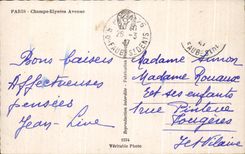 PARIS - Champs-Elysées Avenue
Bons baisers
Affectueuses
pensées
Jean-Line
Madame Simon
Madame Rouaux
et ses enfants
rue
Fougères
Ille et Vilaine
25-3
47
Véritable Photo